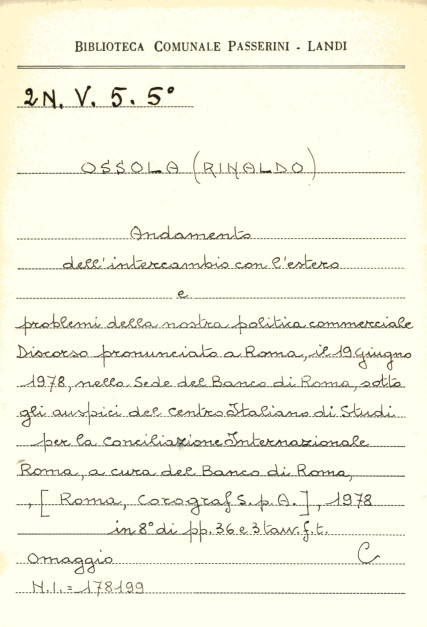 BIBLIOTECA COMUNALE PASSERINI - LANDI
2N. V. 5. 5°
OSSOLA (RINALDO)
Andamento
dell'intercambio con l'estero
e
problemi della nostra politica commerciale
Discorso pronunciato a Roma, il 19 Giugno
1978, nella Sede del Banco di Roma, sotto
gli auspici del Centro Italiano di Studi
per la Conciliazione Internazionale
Roma, a cura del Banco di Roma,
, [ Roma, Corograf S.p.A. ], 1978
in 8° di pp. 36 e 3 tavv. f.t.
Omaggio C
N.I. = 178199